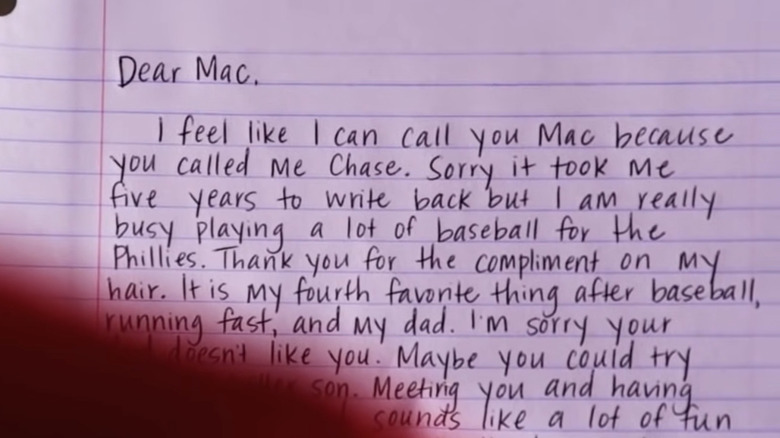 Dear Mac,
I feel like I can call you Mac because
you called me Chase. Sorry it took me
five years to write back but I am really
busy playing a lot of baseball for the
Phillies. Thank you for the compliment on my
hair. It is my fourth favorite thing after baseball,
running fast, and my dad. I'm sorry your
doesn't like you. Maybe you could try
son. Meeting you and having
sounds like a lot of fun